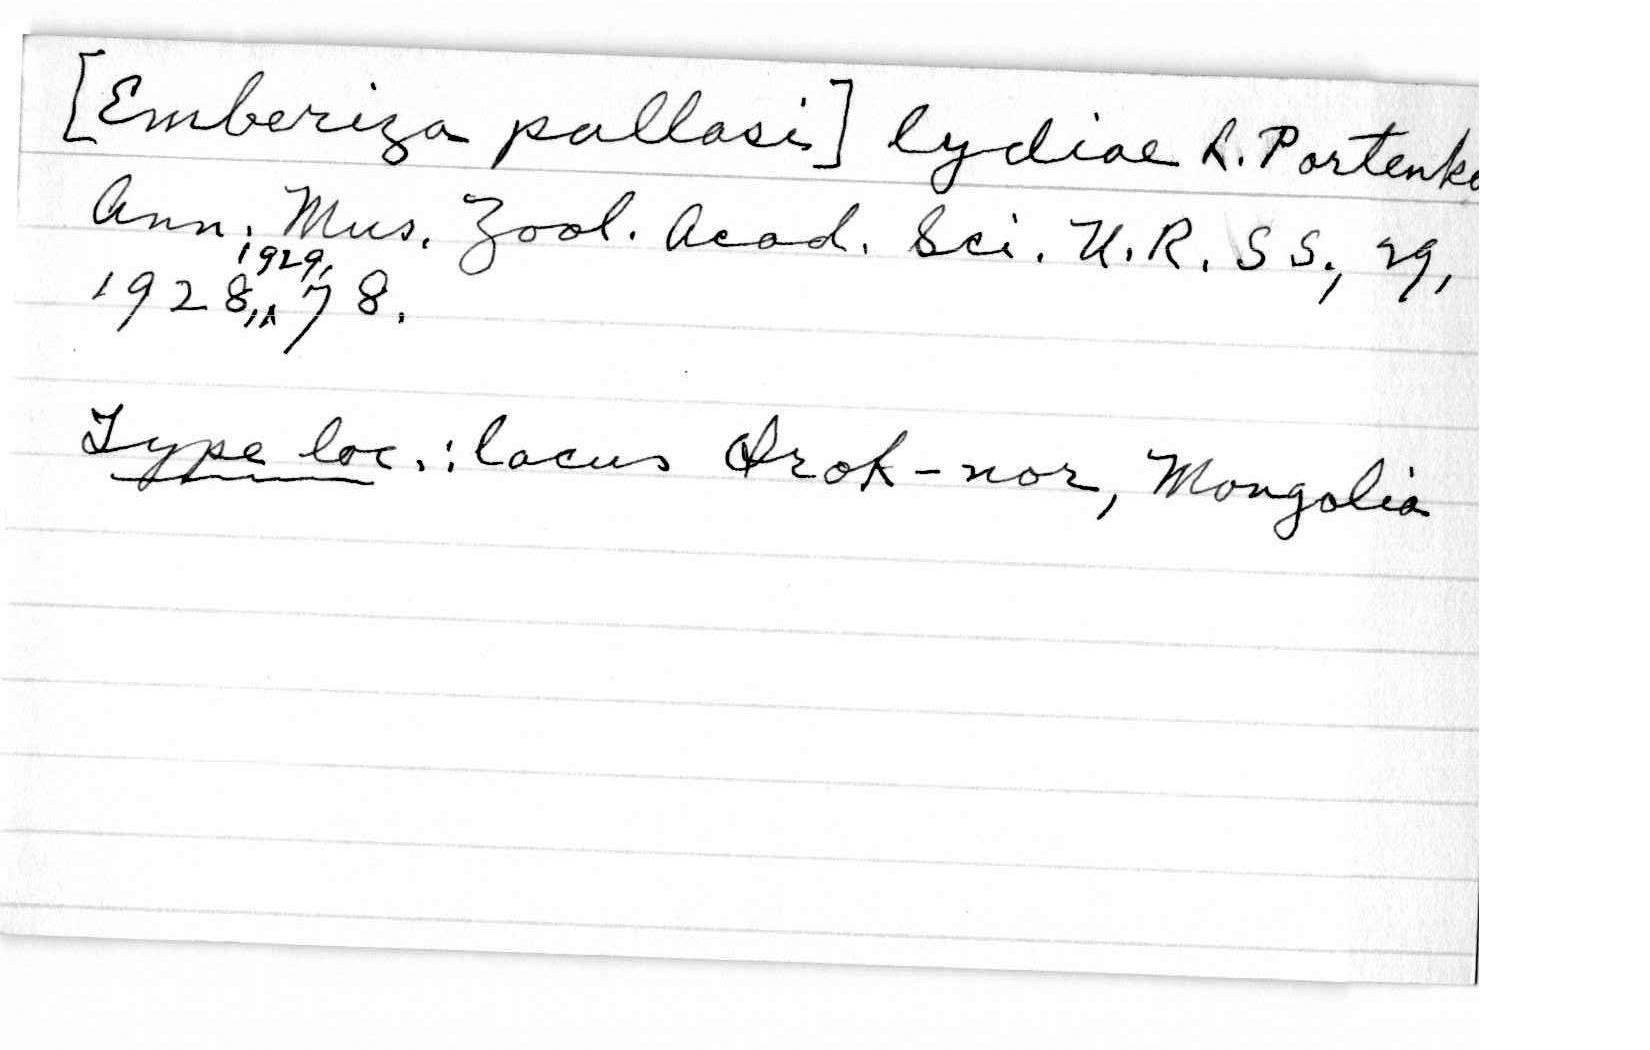 [Emberiza pallasi] lydiae L. Portenko
Ann. Mus. Zool. Acad. Sci. U.R.SS., 29,
1928, 1929, 78.
Type loc.: lacus Orok-nor, Mongolia